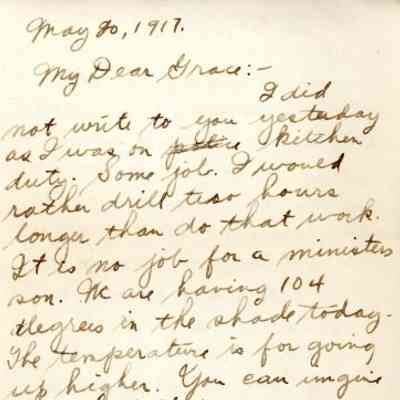 May 20, 1917.
My Dear Grace:-
I did
not write to you yesterday
as I was on kitchen
duty. Some job. I would
rather drill two hours
longer than do that work.
It is no job for a ministers
son. We are having 104
degrees in the shade today.
The temperature is for going
up higher. You can imgine